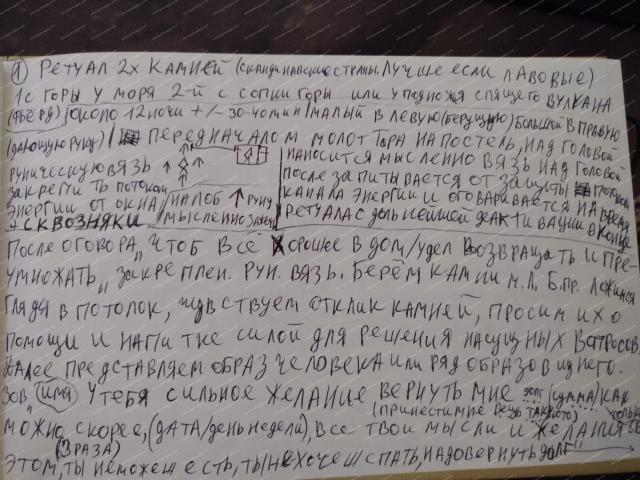 ① РЕТУАЛ 2х КАМНЕЙ (СКАНДИНАВСКИЕ СТРАНЫ. ЛУЧШЕ ЕСЛИ ЛАВОВЫЕ)
1 с ГОРЫ У МОРЯ 2-й с СОПКИ ГОРЫ или У ПОДНОЖЯ СПЯЩЕГО ВУЛКАНА
(ФЬЁРД) (ОКОЛО 12 НОЧИ +/- 30-40 МИН) (МАЛЫЙ В ЛЕВУЮ (БЕРУЩУЮ) БОЛЬШОЙ В ПРАВУЮ
(ДАЮЩУЮ РУКУ) ПЕРЕД НАЧАЛОМ МОЛОТ ТОРА НА ПОСТЕЛЬ, НАД ГОЛОВОЙ
РУНИЧЕСКУЮ ВЯЗЬ
ЗАКРЕПИТЬ ПОТОКОМ
ЭНЕРГИИ ОТ ОКНА
+ СКВОЗНЯКИ
НА ЛОБ ↑ РУНУ
МЫСЛЕННО
НАНОСИТСЯ МЫСЛЕННО ВЯЗЬ НАД ГОЛОВОЙ
ПОСЛЕ ЗАПИТЫВАЕТСЯ ОТ ЗАЩИТЫ ПОТОКОМ
КАНАЛА ЭНЕРГИИ И ОГОВАРИВАЕТСЯ НА ВРЕМЯ
РЕТУАЛА С ДАЛЬНЕЙШЕЙ ДЕАКТИВАЦИИ В КОНЦЕ
ПОСЛЕ ОГОВОРА „ЧТОБ ВСЁ ХОРОШЕЕ В ДОМ/УДЕЛ ВОЗВРАЩАТЬ И ПРЕ-
УМНОЖАТЬ„ ЗАКРЕПЛЕН. РУН. ВЯЗЬ. БЕРЁМ КАМНИ М.Л, Б.ПР. ЛОЖИМСЯ
ГЛЯДЯ В ПОТОЛОК, ЧУВСТВУЕМ ОТКЛИК КАМНЕЙ, ПРОСИМ ИХ О
ПОМОЩИ И НАПИТКЕ СИЛОЙ ДЛЯ РЕШЕНИЯ НАСУЩНЫХ ВОПРОСОВ.
ДАЛЕЕ ПРЕДСТАВЛЯЕМ ОБРАЗ ЧЕЛОВЕКА ИЛИ РЯД ОБРАЗОВ
ЗОВ„ (ИМЯ) У ТЕБЯ СИЛЬНОЕ ЖЕЛАНИЕ ВЕРНУТЬ МНЕ ДОЛГ (СУММА) КАК
(ПРИНЕСТИ МНЕ ВЕЩЬ ТАКУЮТО) ТОЛЬКО
МОЖНО СКОРЕЕ, (ДАТА/ДЕНЬ НЕДЕЛИ), ВСЕ ТВОИ МЫСЛИ И ЖЕЛАНИЯ ОБ
(3 РАЗА)
ЭТОМ, ТЫ НЕ МОЖЕШ ЕСТЬ, ТЫ НЕ ХОЧЕШ СПАТЬ, НАДО ВЕРНУТЬ ДОЛГ